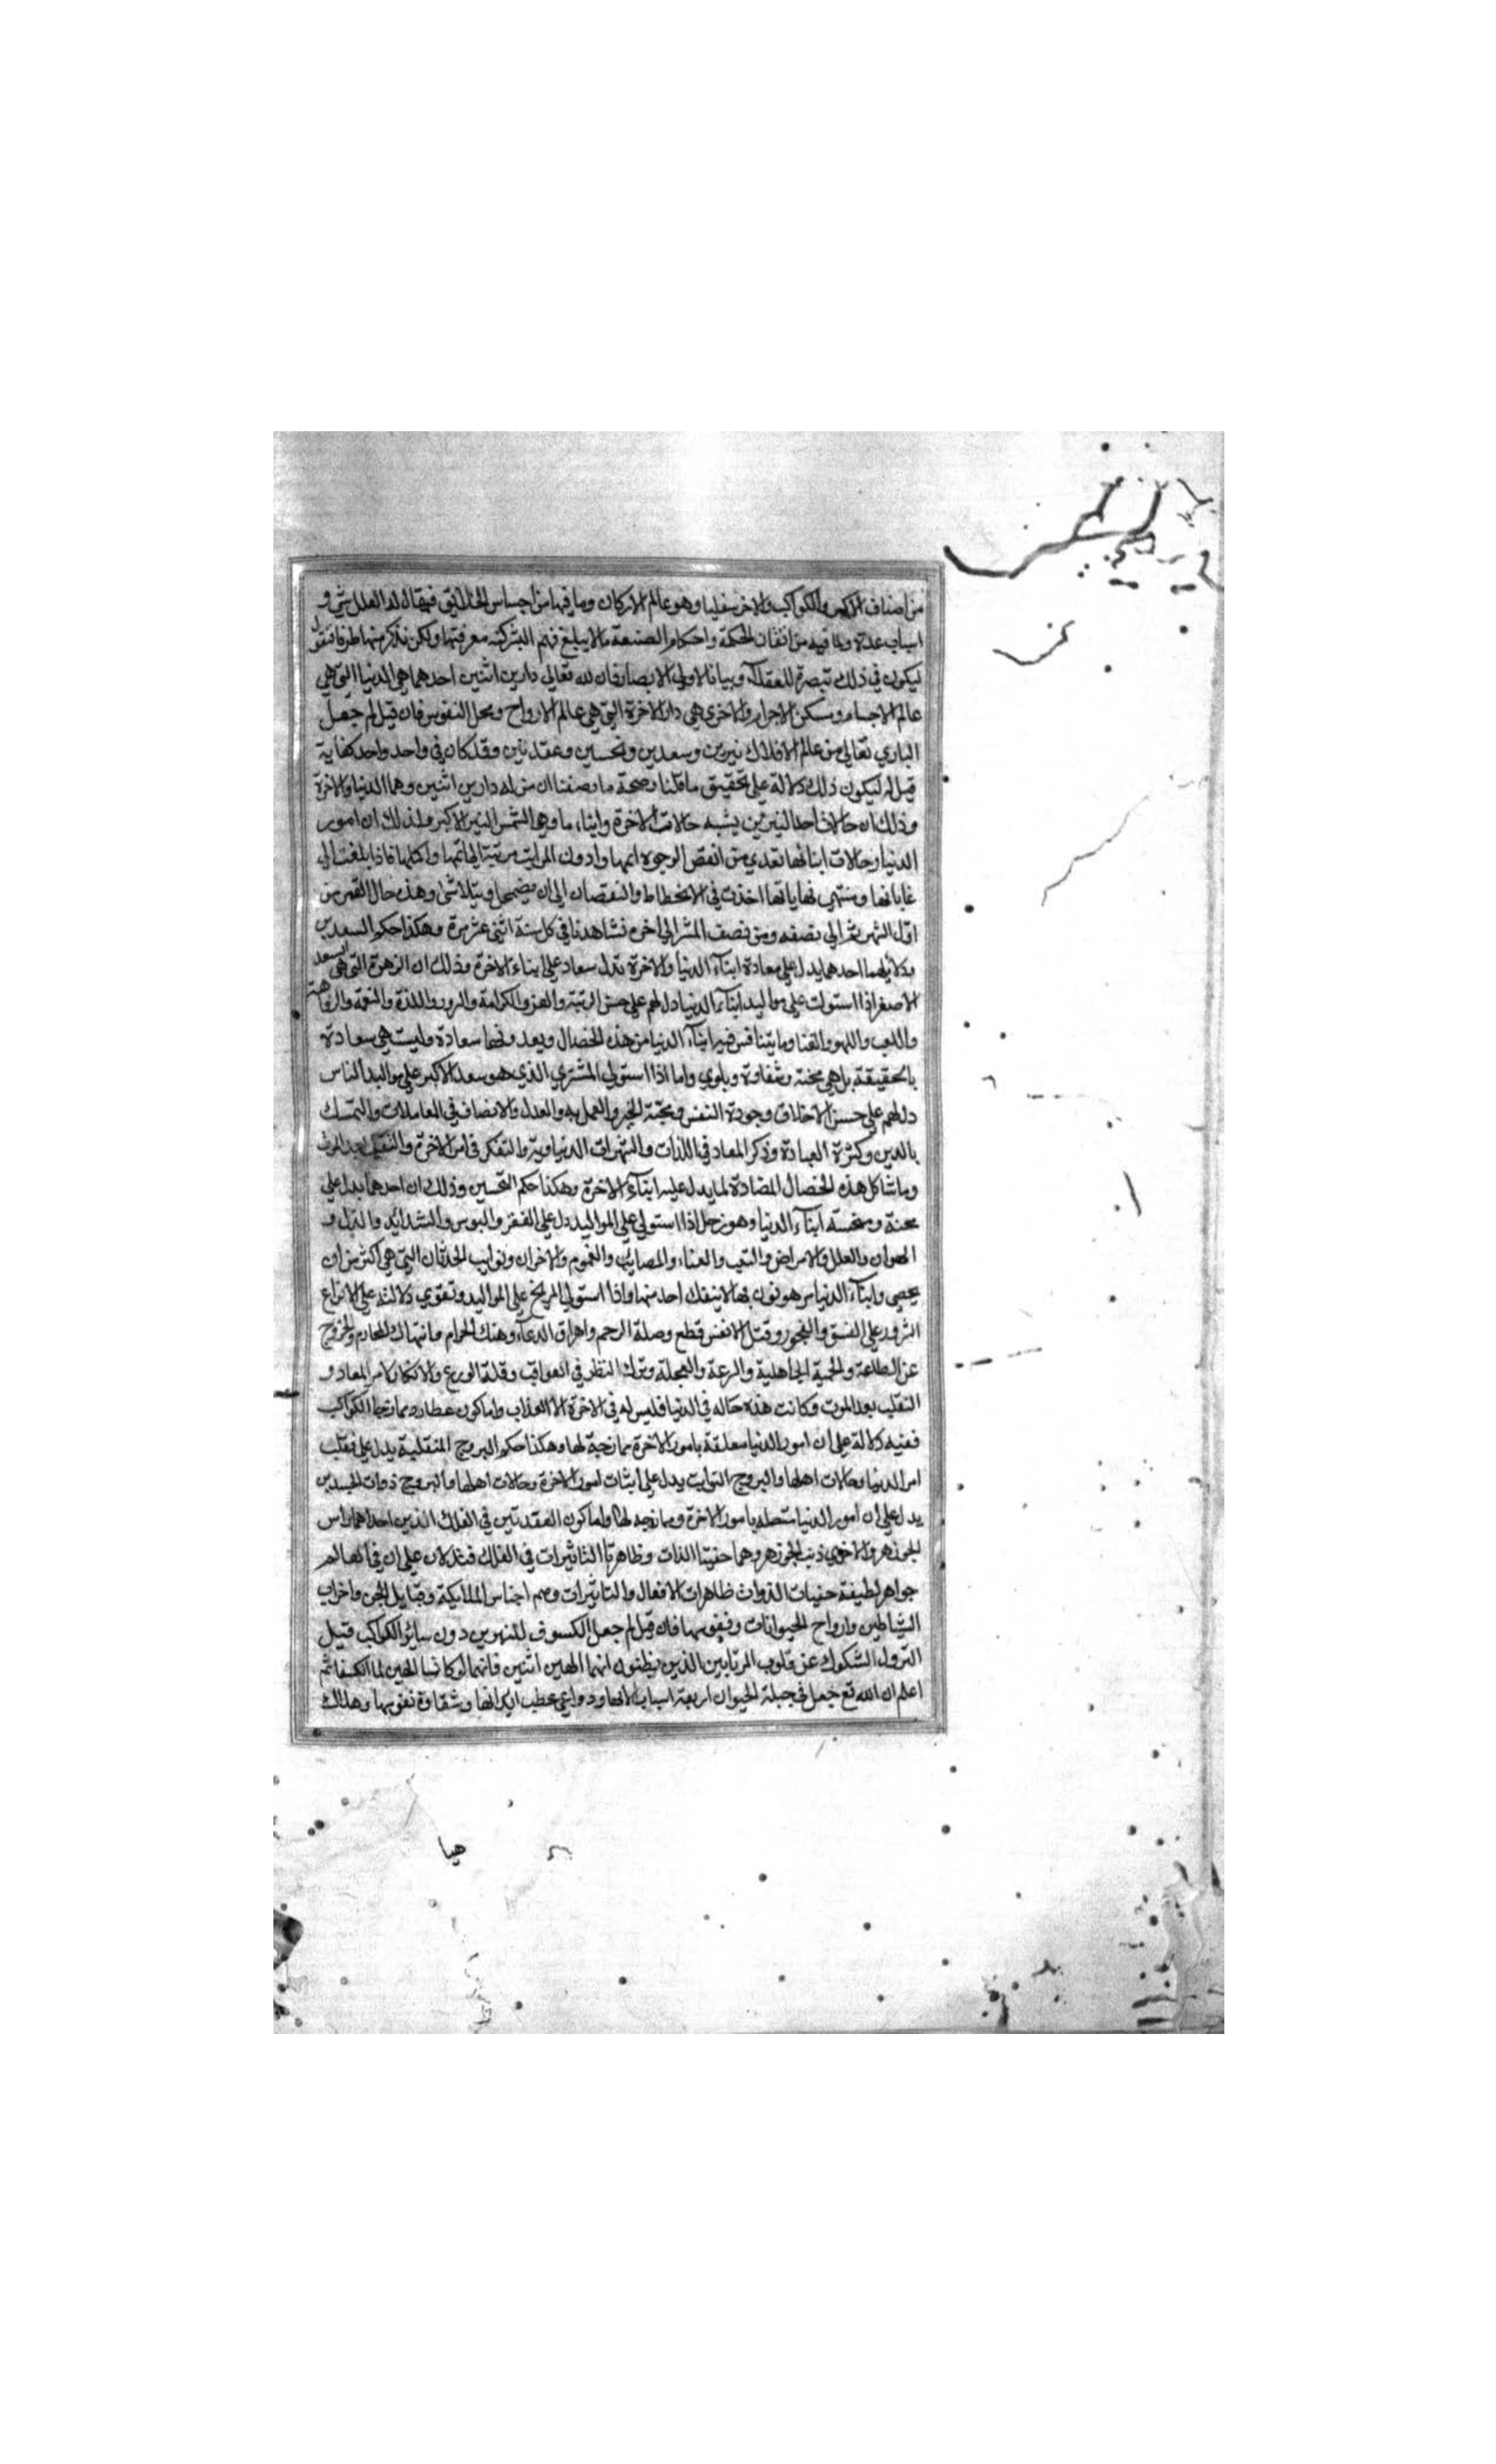 من اصناف الاكر والكواكب والاخر سفليا وهو عالم الاركان وما فيها من اجناس الخلايق فيقال له لعلل شتى و
اسباب عدة وما فيه من اتقان الحكمة واحكام الصنعة ما لا يبلغ فهم البشر كنه معرفتها ولكن نذكر منها طرفا فنقول
ليكون في ذلك تبصرة للعقلاء وبيانا لاولى الابصار فان لله تعالى دارين اثنتين احدهما هي الدنيا التي هي
عالم الاجسام ومسكن الاجرام والاخرى هي دار الاخرة التي هي عالم الارواح ومحل النفوس فان قيل لم جعل
الباري تعالى من عالم الافلاك نيرين وسعدين ونحسين وعقدتين وقد كان في واحد واحد كفاية
قيل له ليكون ذلك دلالة على تحقيق ما قلنا وصحة ما وصفنا ان من له دارين اثنتين وهما الدنيا والاخرة
وذلك ان حالات احد النيرين يشبه حالات الاخرة وابناءها وهي الشمس النير الاكبر وذلك ان امور
الدنيا وحالات ابنائها تبتدي من انقص الوجوه اتمها وادون المراتب مرتبة الى اتمها واكملها فاذا بلغت الى
غاياتها ومنتهى نهاياتها اخذت في الانحطاط والنقصان الى ان يضمحل ويتلاشى وهذه حال القمر من
اول الشهر الى نصفه ومن نصف الشهر الى اخره نشاهدنا في كل سنة اثنى عشر مرة وهكذا حكم السعدين
ودلايلهما احدهما يدل على سعادة ابناء الدنيا والاخرة تدل سعاد على ابناء الاخرة وذلك ان الزهرة التي هي السعد
الاصغر اذا استولت على مواليد ابناء الدنيا دل لهم على حسن الرتبة والعز والكرامة والسرور واللذة والنعمة والرفاهية
واللعب واللهو والغنا وما يتنافس فيه ابناء الدنيا من هذه الخصال ويعدونها سعادة وليست هي سعادة
بالحقيقة بل هي محنة وشقاوة وبلوى واما اذا استولى المشتري الذي هو سعد الاكبر على مواليد الناس
دل لهم على حسن الاخلاق وجودة النفس ومحبة الخير والعمل به والعدل والانصاف في المعاملات والتمسك
بالدين وكثرة العبادة وذكر المعاد في اللذات والشهوات الدنياوية والتفكر في امر الاخرة والتقلب بعد الموت
وما شاكل هذه الخصال المضادة لما يدل عليه ابناء الاخرة وهكذا حكم النحسين وذلك ان احدهما يدل على
محنة ومنحسة ابناء الدنيا وهو زحل اذا استولى على المواليد دل على الفقر والبوس والشدائد والذل و
الهوان والعلل والامراض والتعب والعناء والمصائب والغموم والاحزان ونوايب الحدثان التي هي اكثر من ان
يحصى وابناء الدنيا مرهونون بها لا ينفك احد منها واذا استولى المريخ على المواليد وتقوى دلالته على انواع
الشرور على الفسق والفجور وقتل الانفس قطع وصلة الرحم واهراق الدماء وهتك الحرام وانتهاك المحارم والخروج
عن الطاعة والحمية الجاهلية والسرعة والعجلة وترك النظر في العواقب وقلة الورع والانكار لامر المعاد و
التقلب بعد الموت وكانت هذه حاله في الدنيا فليس له في الاخرة الا العذاب واما كون عطارد وممازجا الكواكب
ففيه دلالة على ان امور الدنيا معلقة بامور الاخرة ممازجة لها وهكذا حكم البروج المنقلبة يدل على تقلب
امر الدنيا وحالات اهلها والبروج الثوابت يدل على ابثات امور الاخرة وحالات اهلها والبروج ذوات الجسدين
يدل على ان امور الدنيا متصله بامور الاخرة وممازجه لها واما كون العقدتين في الفلك الذين احداهما راس
الجوزهر والاخرى ذنب الجوزهر وهما خفيتا الذات وظاهرتا التاثيرات في الفلك فتدلان على ان في العالم
جواهر لطيفة خفيات الذوات ظاهرات الافعال والتاثيرات وهم اجناس الملايكة وقبايل الجن واحزاب
الشياطين وارواح الحيوانات ونفوسها فان قيل لم جعل الكسوف للنيرين دون سائر الكواكب قيل
لتزول الشكوك عن قلوب المرتابين الذين يظنون انهما الهين اثنين فانهما لو كانا الهين لما انكسفا ثم
اعلم ان الله تع جعل في جبلة الحيوان اربعة اسباب لانها ودواعي عطب ابدانها وشقاوة نفوسها وهلاك
هيا